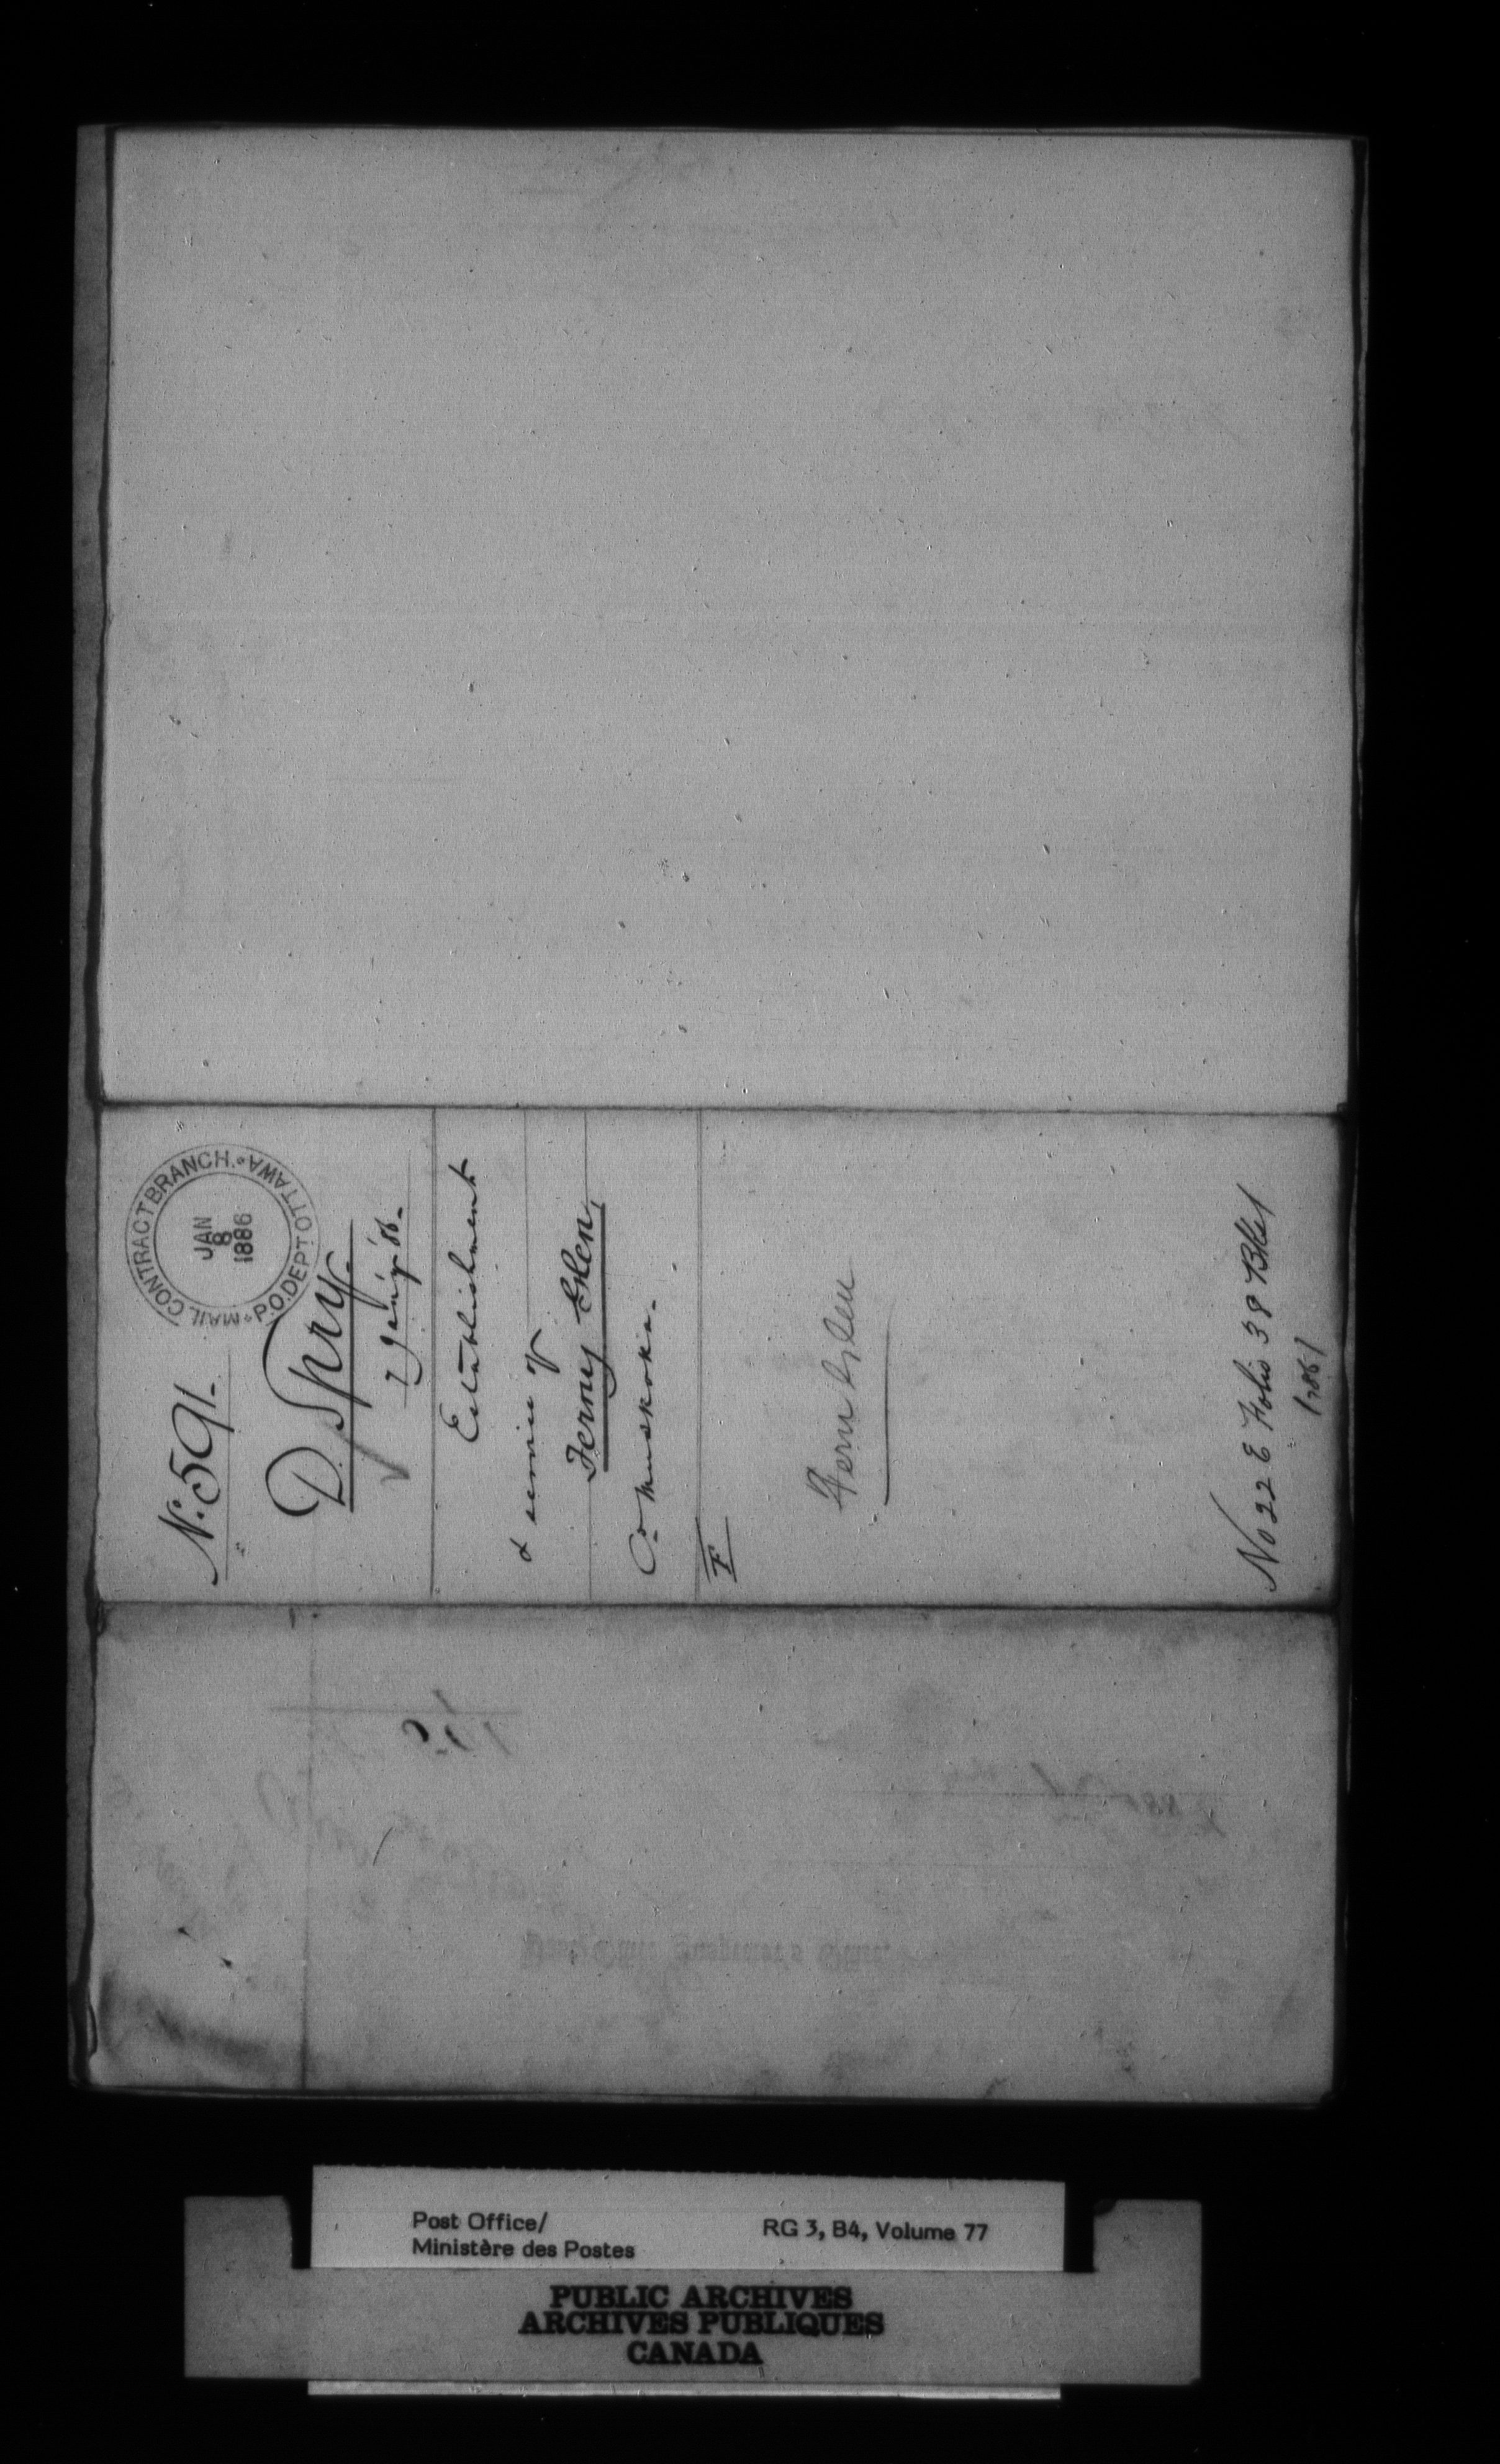 N. 591.
MAIL CONTRACT BRANCH. P.O. DEPT OTTAWA
JAN
8
1886
D. Spry.
7 Jany '86.
Establishment
& service of
Ferny Glen,
Co Muskoka.
F
Fern Glen
No 22 E Folio 38 Bklet
1886/
Post Office/
Ministère des Postes
RG 3, B4, Volume 77
PUBLIC ARCHIVES
ARCHIVES PUBLIQUES
CANADA